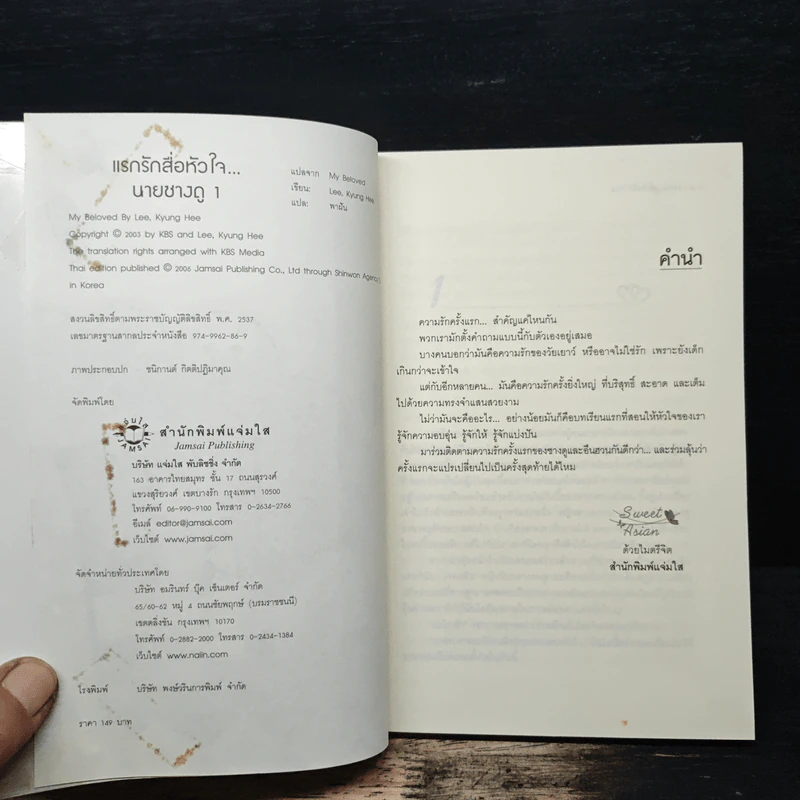 แรกรักสื่อหัวใจ...
นายชางดู 1
แปลจาก My Beloved
เขียน: Lee, Kyung Hee
แปล: พามัน
My Beloved By Lee, Kyung Hee
Copyright © 2003 by KBS and Lee, Kyung Hee
The translation rights arranged with KBS Media
Thai edition published © 2006 Jamsai Publishing Co., Ltd through Shinwon Agency
in Korea
สงวนลิขสิทธิ์ตามพระราชบัญญัติลิขสิทธิ์ พ.ศ. 2537
เลขมาตรฐานสากลประจำหนังสือ 974-9962-86-9
ภาพประกอบปก ชนิกานต์ กิตติปฏิมาคุณ
จัดพิมพ์โดย
สำนักพิมพ์แจ่มใส
Jamsai Publishing
บริษัท แจ่มใส พับลิชชิ่ง จำกัด
163 อาคารไทยสมุทร ชั้น 17 ถนนสุรวงศ์
แขวงสุริยวงศ์ เขตบางรัก กรุงเทพฯ 10500
โทรศัพท์ 06-990-9100 โทรสาร 0-2634-2766
อีเมล์ editor@jamsai.com
เว็บไซต์ www.jamsai.com
จัดจำหน่ายทั่วประเทศโดย
บริษัท อมรินทร์ บุ๊ค เซ็นเตอร์ จำกัด
65/60-62 หมู่ 4 ถนนชัยพฤกษ์ (บรมราชชนนี)
เขตตลิ่งชัน กรุงเทพฯ 10170
โทรศัพท์ 0-2882-2000 โทรสาร 0-2434-1384
เว็บไซต์ www.naiin.com
โรงพิมพ์ บริษัท พงษ์วรินการพิมพ์ จำกัด
ราคา 149 บาท
คำนำ
ความรักครั้งแรก... สำคัญแค่ไหนกัน
พวกเรามักตั้งคำถามแบบนี้กับตัวเองอยู่เสมอ
บางคนบอกว่ามันคือความรักของวัยเยาว์ หรืออาจไม่ใช่รัก เพราะยังเด็ก
เกินกว่าจะเข้าใจ
แต่กับอีกหลายคน... มันคือความรักครั้งยิ่งใหญ่ ที่บริสุทธิ์ สะอาด และเต็ม
ไปด้วยความทรงจำแสนสวยงาม
ไม่ว่ามันจะคืออะไร... อย่างน้อยมันก็คือบทเรียนแรกที่สอนให้หัวใจของเรา
รู้จักความอบอุ่น รู้จักให้ รู้จักแบ่งปัน
มาร่วมติดตามความรักครั้งแรกของชางดูและอึนฮวนกันดีกว่า... และร่วมลุ้นว่า
ครั้งแรกจะแปรเปลี่ยนไปเป็นครั้งสุดท้ายได้ไหม
Sweet
Asian
ด้วยไมตรีจิต
สำนักพิมพ์แจ่มใส